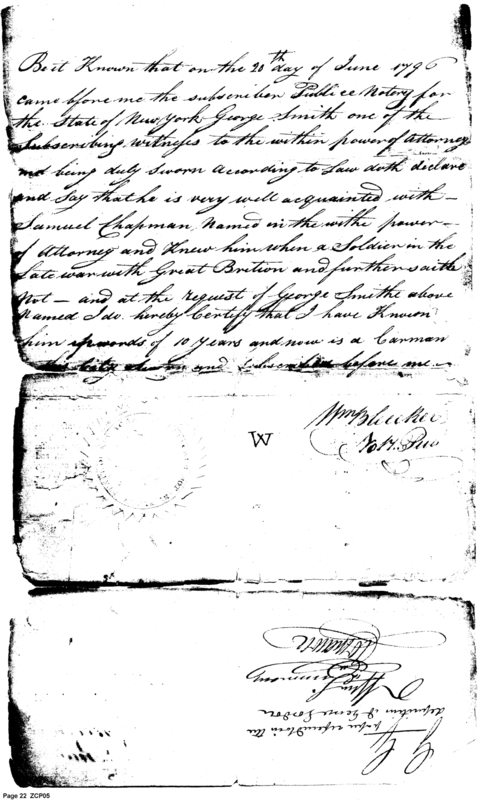 Be it Known that on the 20th day of June 1796
came before me the subscriber Publice Notery for
the State of New York George Smith one of the
Subscribing witnesses to the within power of Attorney
and being duly sworn According to Law doth declare
and Say that he is very well acquainted with —
Samuel Chapman Named in the withe power —
of Attorney and Knew him when a Soldier in the
Late war with Great Brition and further saith
Not — and at the request of George Smithe above
Named I do hereby Certify that I have Known
him upwords of 10 Years and now is a Carman
City and Subscribed before me
Wm Bleecker
W
deposition of
Page 22 ZCP05